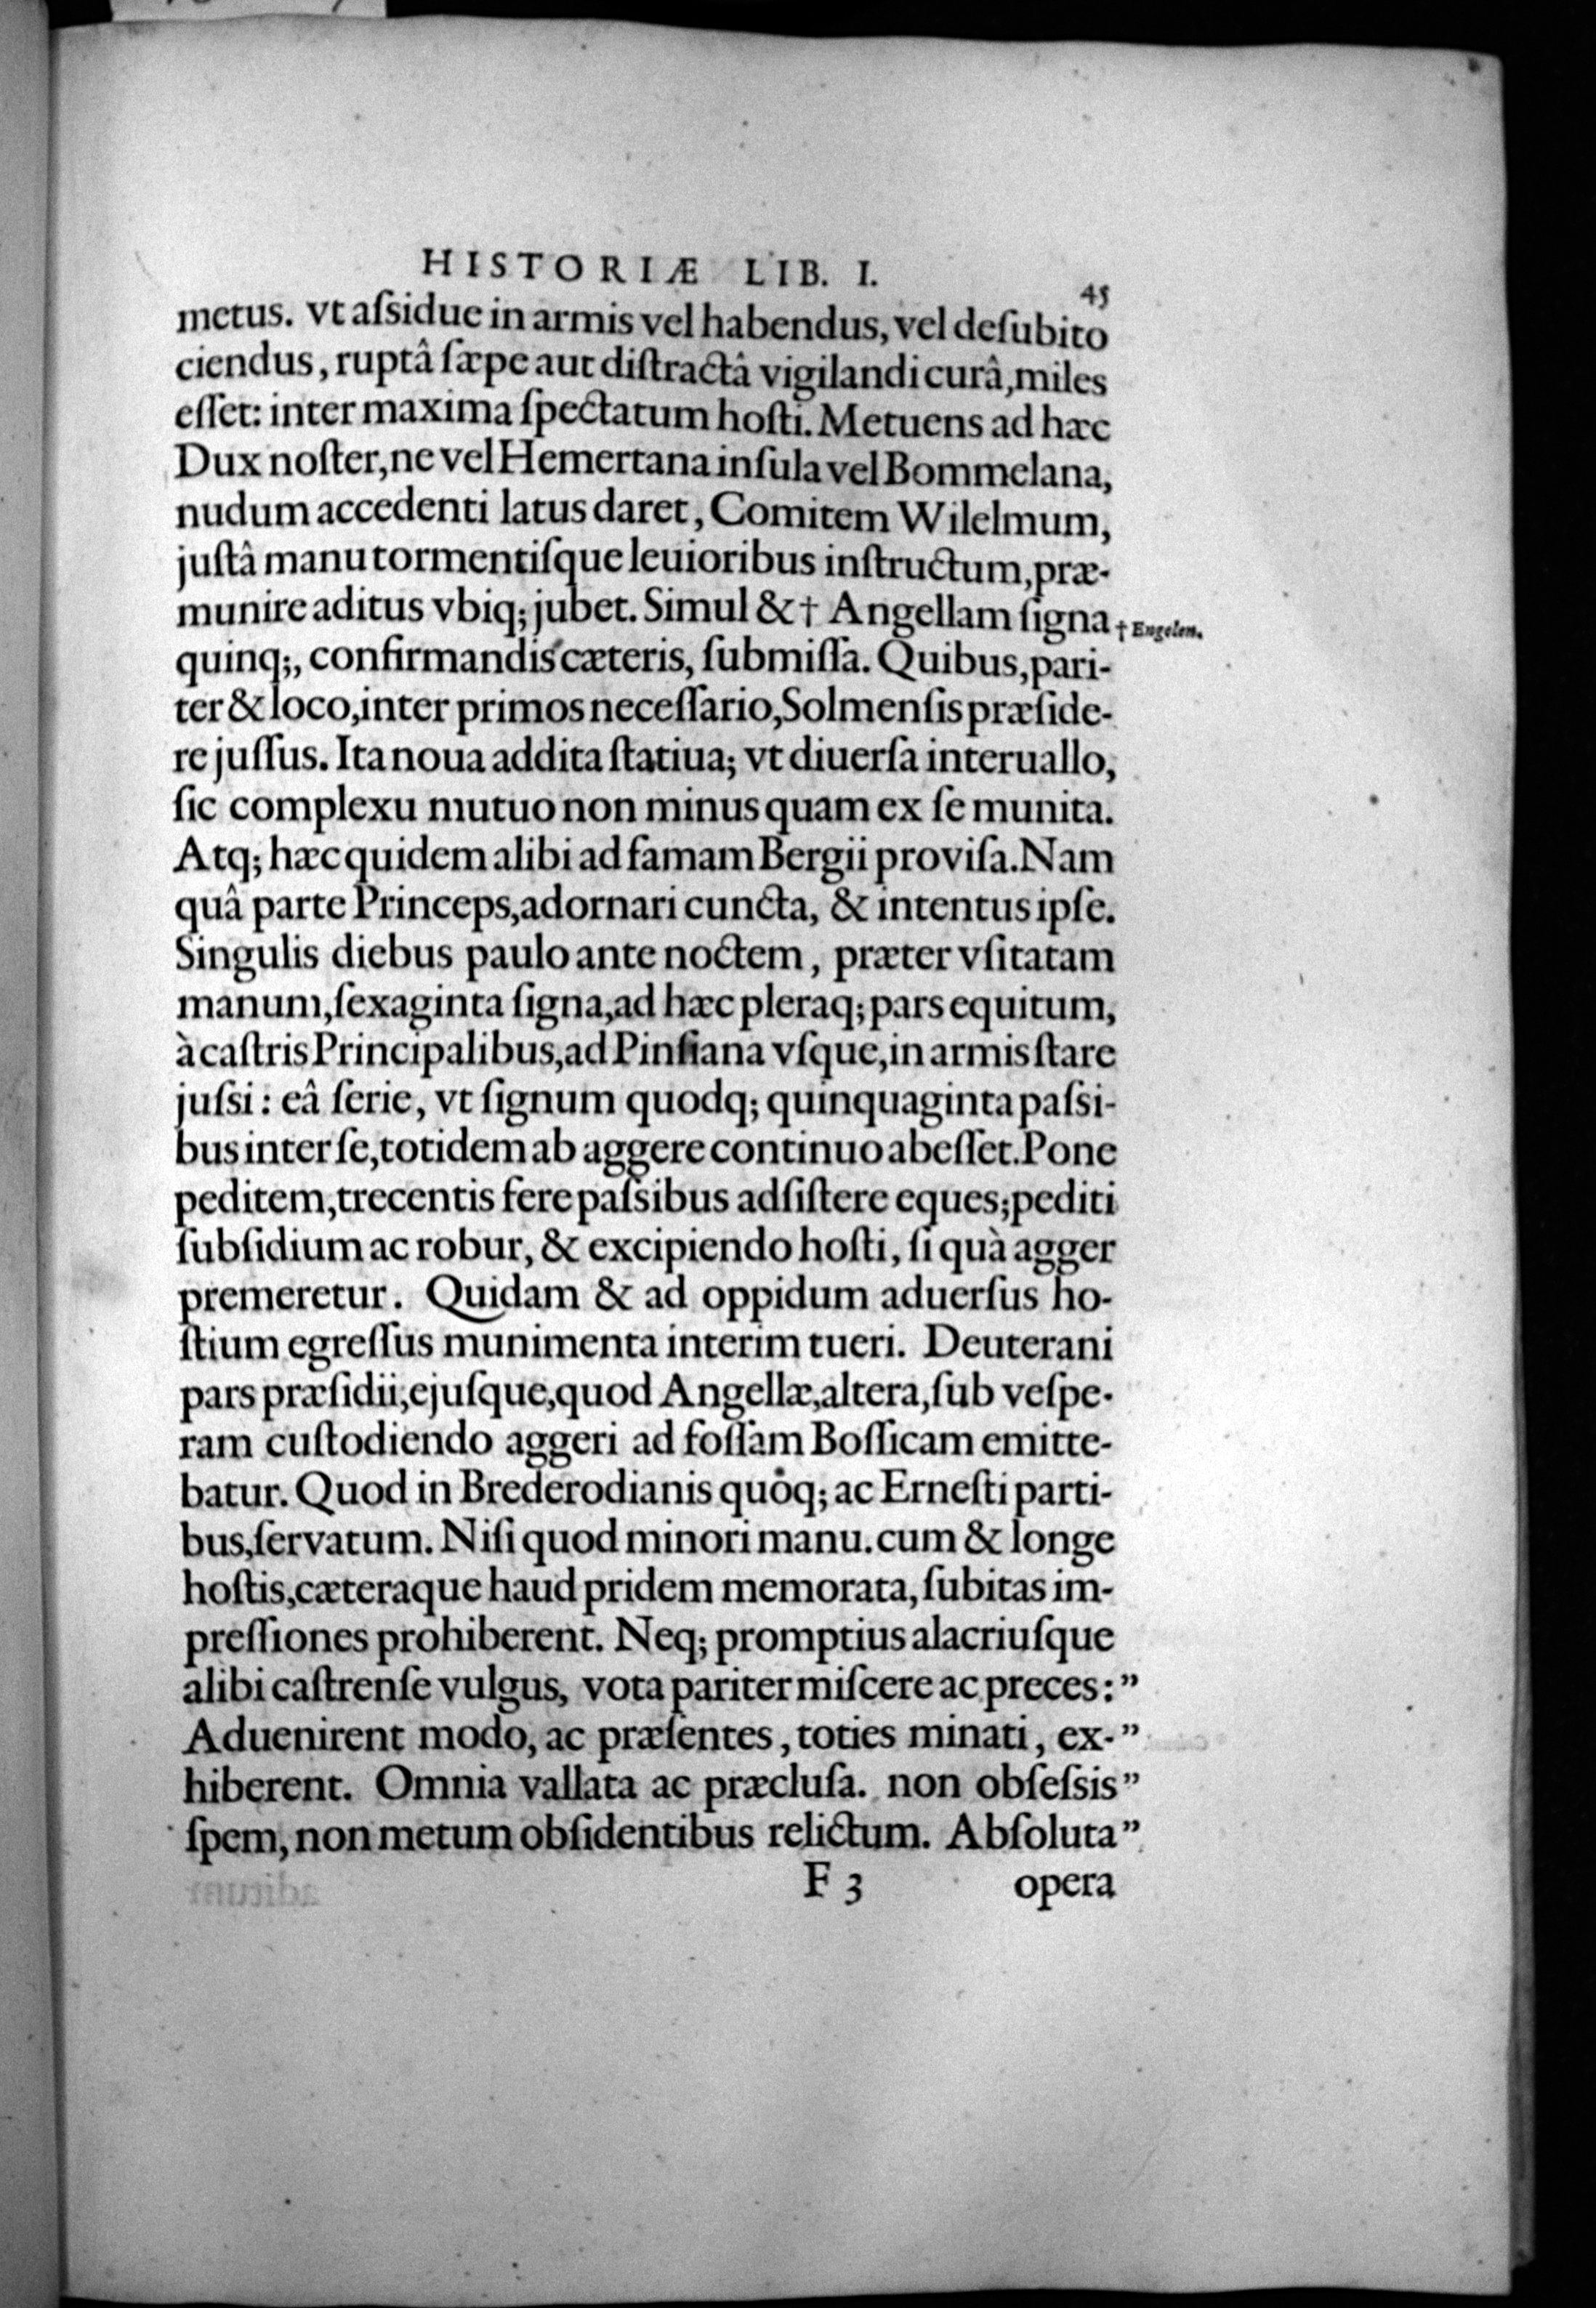 HISTORIÆ LIB. I. 45
metus. vt aſsidue in armis vel habendus, vel deſubito
ciendus, ruptâ ſæpe aut diſtractâ vigilandi curâ, miles
eſſet: inter maxima ſpectatum hoſti. Metuens ad hæc
Dux noſter, ne vel Hemertana inſula vel Bommelana,
nudum accedenti latus daret, Comitem Wilelmum,
juſtâ manu tormentiſque leuioribus inſtructum, præ-
munire aditus vbiq; jubet. Simul & † Angellam ſigna
† Engelen.
quinq;, confirmandis cæteris, ſubmiſſa. Quibus, pari-
ter & loco, inter primos neceſſario, Solmenſis præſide-
re juſſus. Ita noua addita ſtatiua; vt diuerſa interuallo,
ſic complexu mutuo non minus quam ex ſe munita.
Atq; hæc quidem alibi ad famam Bergii proviſa. Nam
quâ parte Princeps, adornari cuncta, & intentus ipſe.
Singulis diebus paulo ante noctem, præter vſitatam
manum, ſexaginta ſigna, ad hæc pleraq; pars equitum,
à caſtris Principalibus, ad Pinſiana vſque, in armis ſtare
juſsi: eâ ſerie, vt ſignum quodq; quinquaginta paſsi-
bus inter ſe, totidem ab aggere continuo abeſſet. Pone
peditem, trecentis fere paſsibus adſiſtere eques; pediti
ſubſidium ac robur, & excipiendo hoſti, ſi quà agger
premeretur. Quidam & ad oppidum aduerſus ho-
ſtium egreſſus munimenta interim tueri. Deuterani
pars præſidii, ejuſque, quod Angellæ, altera, ſub veſpe-
ram cuſtodiendo aggeri ad foſſam Boſſicam emitte-
batur. Quod in Brederodianis quoq; ac Erneſti parti-
bus, ſervatum. Niſi quod minori manu. cum & longe
hoſtis, cæteraque haud pridem memorata, ſubitas im-
preſſiones prohiberent. Neq; promptius alacriuſque
alibi caſtrenſe vulgus, vota pariter miſcere ac preces: ”
Aduenirent modo, ac præſentes, toties minati, ex- ”
hiberent. Omnia vallata ac præcluſa. non obſeſsis ”
ſpem, non metum obſidentibus relictum. Abſoluta ”
F 3 opera